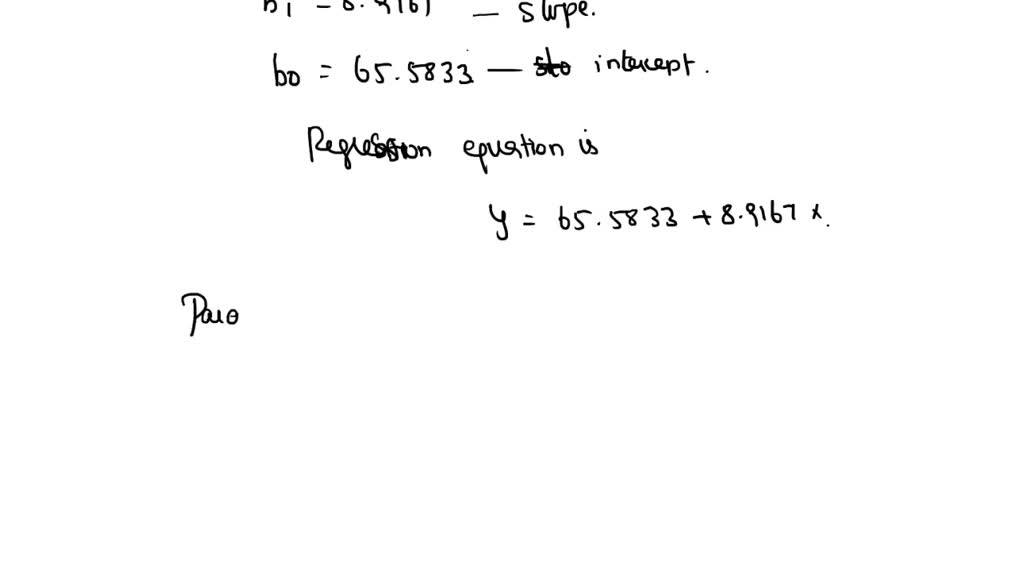 b1 = 8.9167 — slope.
b0 = 65.5833 — sto intercept.
Regression equation is
y = 65.5833 + 8.9167 x.
Para